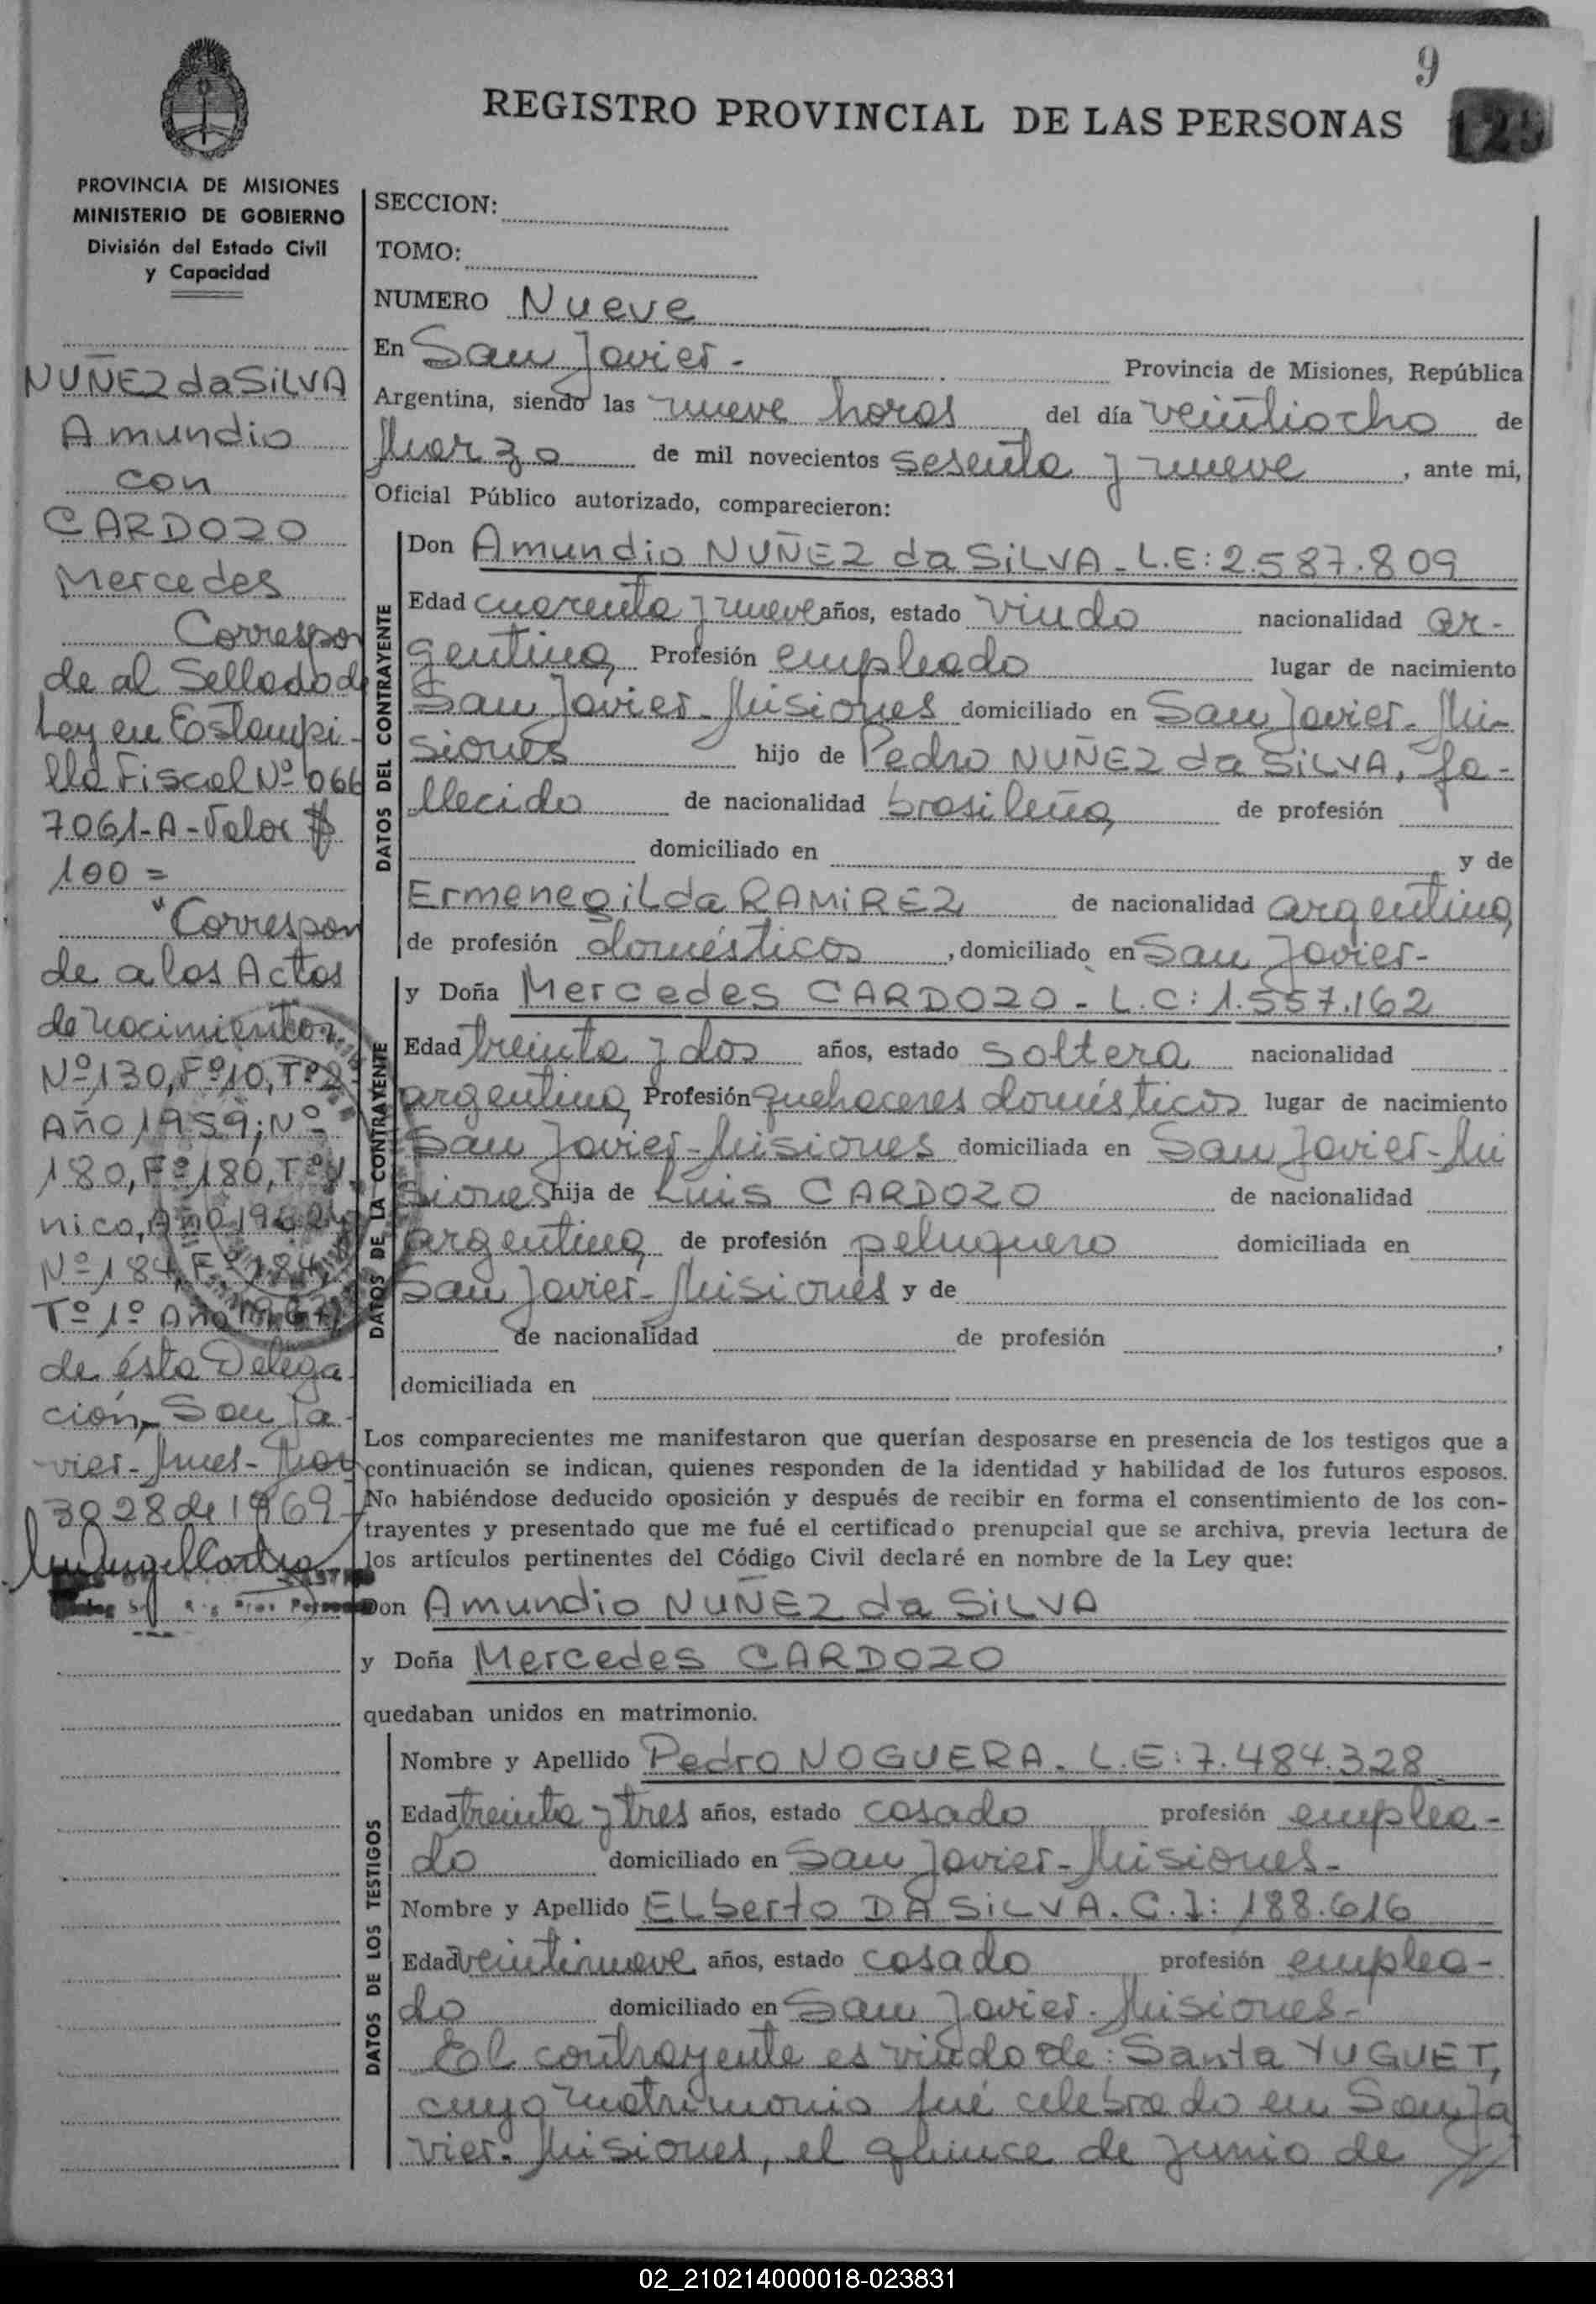 9
REGISTRO PROVINCIAL DE LAS PERSONAS
125
PROVINCIA DE MISIONES
MINISTERIO DE GOBIERNO
División del Estado Civil
y Capacidad
NUÑEZ da SILVA
Amundio
con
CARDOZO
Mercedes
Correspon
de al Sellado d
Ley en Estampi-
lla Fiscal Nº 066
7061-A-Valor $
100=
"Correspon
de a las Actas
de nacimiento
Nº130, Fº10, Tº2º
Año 1959; Nº
180, Fº180, Tº Ú
nico, Año 196
Nº184, Fº184,
Tº 1º Año 196
de ésta Delega
ción, San Ja
vier-Mnes-Mar
zo 28 de 1969-
SECCION:
TOMO:
NUMERO Nueve
En San Javier.- Provincia de Misiones, República
Argentina, siendo las nueve horas del día veintiocho de
Marzo de mil novecientos sesenta y nueve, ante mi,
Oficial Público autorizado, comparecieron:
DATOS DEL CONTRAYENTE
Don Amundio NUÑEZ da SILVA - L.E: 2.587.809
Edad cuarenta y nueve años, estado viudo nacionalidad ar-
gentina, Profesión empleado lugar de nacimiento
San Javier-Misiones domiciliado en San Javier-Mi-
siones hijo de Pedro NUÑEZ da SILVA, fa-
llecido de nacionalidad brasileña, de profesión
domiciliado en y de
Ermenegilda RAMIREZ de nacionalidad argentina,
de profesión domésticos, domiciliado en San Javier-
DATOS DE LA CONTRAYENTE
y Doña Mercedes CARDOZO - L.C: 1.557.162
Edad treinta y dos años, estado soltera nacionalidad
argentina, Profesión quehaceres domésticos lugar de nacimiento
San Javier-Misiones domiciliada en San Javier-Mi
siones hija de Luis CARDOZO de nacionalidad
argentina, de profesión peluquero domiciliada en
San Javier-Misiones y de
de nacionalidad de profesión ,
domiciliada en
Los comparecientes me manifestaron que querían desposarse en presencia de los testigos que a
continuación se indican, quienes responden de la identidad y habilidad de los futuros esposos.
No habiéndose deducido oposición y después de recibir en forma el consentimiento de los con-
trayentes y presentado que me fué el certificado prenupcial que se archiva, previa lectura de
los artículos pertinentes del Código Civil declaré en nombre de la Ley que:
Don Amundio NUÑEZ da SILVA
y Doña Mercedes CARDOZO
quedaban unidos en matrimonio.
DATOS DE LOS TESTIGOS
Nombre y Apellido Pedro NOGUERA. L.E: 7.484.328
Edad treinta y tres años, estado casado profesión emplea-
do domiciliado en San Javier-Misiones-
Nombre y Apellido ELberto DA SILVA. C.I: 188.616
Edad veintinueve años, estado casado profesión emplea-
do domiciliado en San Javier-Misiones-
El contrayente es viudo de: Santa YUGUET,
cuyo matrimonio fué celebrado en San Ja
vier-Misiones, el quince de junio de //
02_210214000018-023831